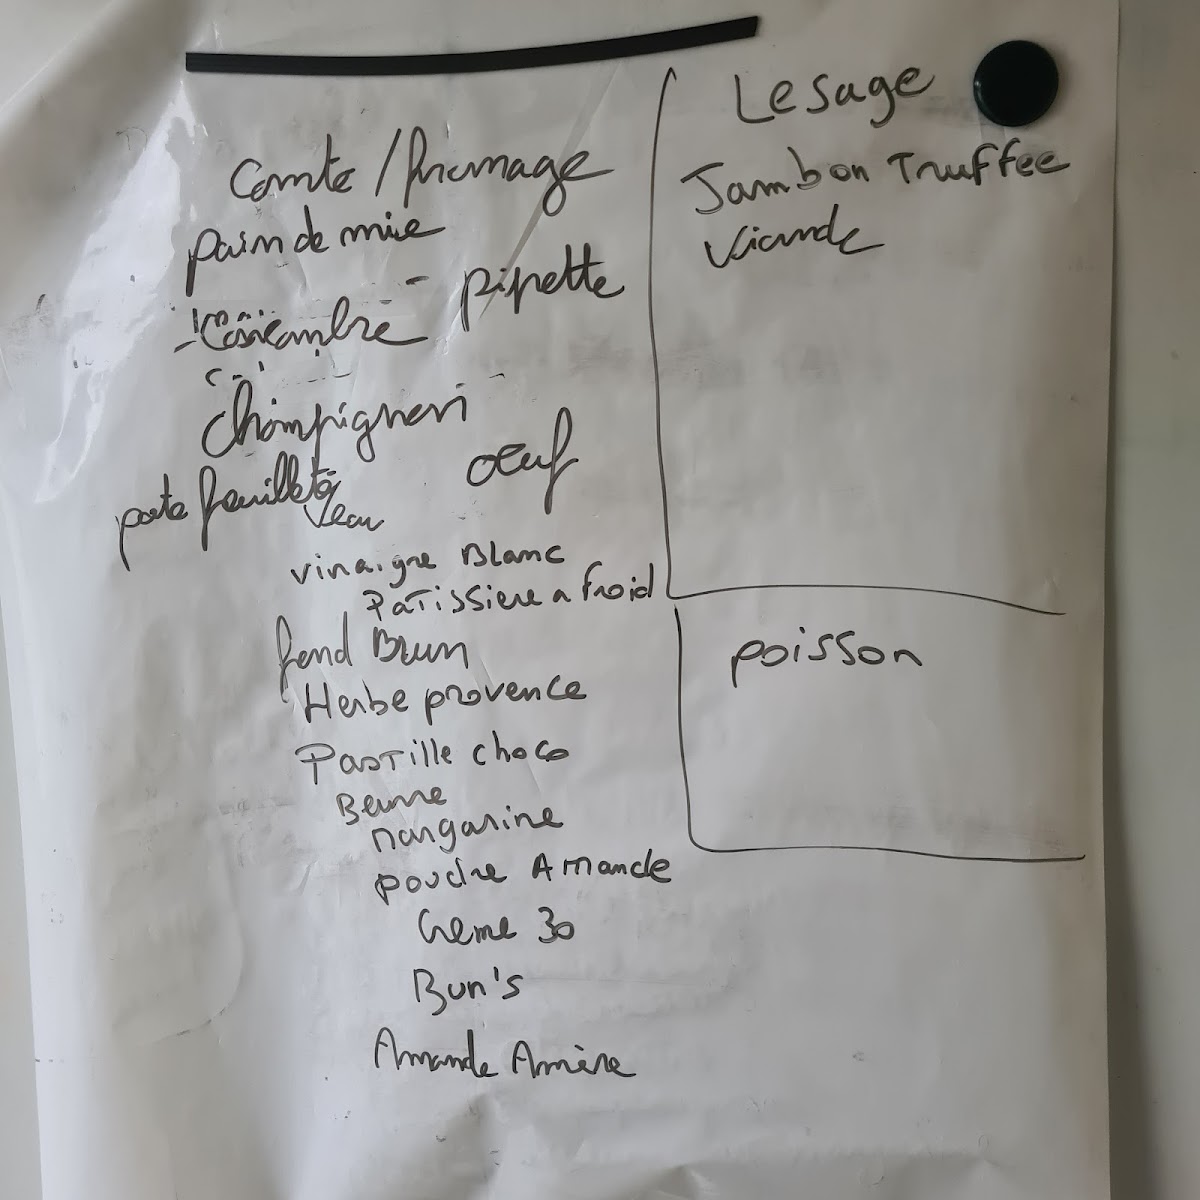 Comté / fromage
pain de mie
pipette
champignon
oeuf
pate feuilleté
Veau
vinaigre Blanc
Patissiere a froid
fond Brun
Herbe provence
Pastille choco
Beurre
margarine
poudre Amande
Creme 30
Bun's
Amande Amère
Lesage
Jambon Truffee
Viande
poisson